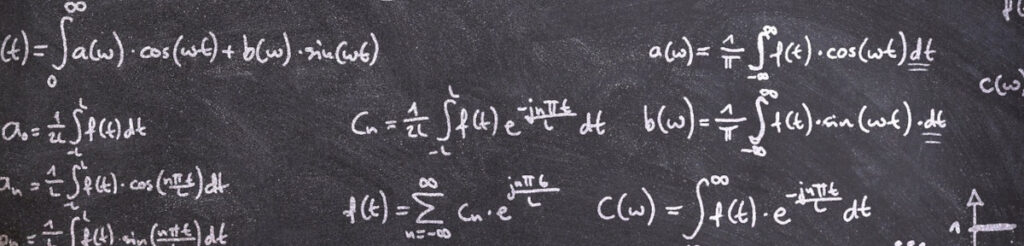 (t) = ∫₀^∞ a(ω) · cos(ωt) + b(ω) · sin(ωt)
a(ω) = 1/π ∫_{-∞}^{∞} f(t) · cos(ωt) dt
c(ω)
a₀ = 1/2L ∫_{-L}^{L} f(t) dt
Cₙ = 1/2L ∫_{-L}^{L} f(t) e^{-jnπt/L} dt
b(ω) = 1/π ∫_{-∞}^{∞} f(t) · sin(ωt) · dt
aₙ = 1/L ∫_{-L}^{L} f(t) · cos(nπt/L) dt
f(t) = Σ_{n=-∞}^{∞} Cₙ · e^{jnπt/L}
C(ω) = ∫^{∞} f(t) · e^{-jnπt/L} dt
1
= 1/L ∫^{L} f(t) · sin(nπt/L) dt